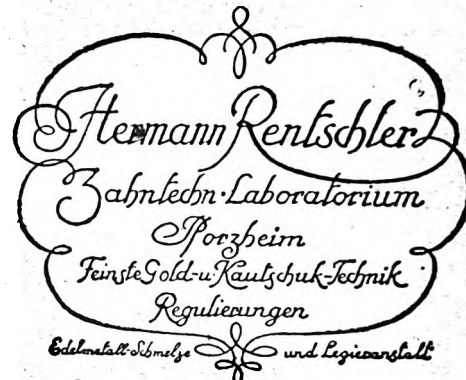 Hermann Rentschler
Zahntechn. Laboratorium
Pforzheim
Feinste Gold-u. Kautschuk-Technik
Regulierungen
Edelmetall-Schmelze und Legieranstalt